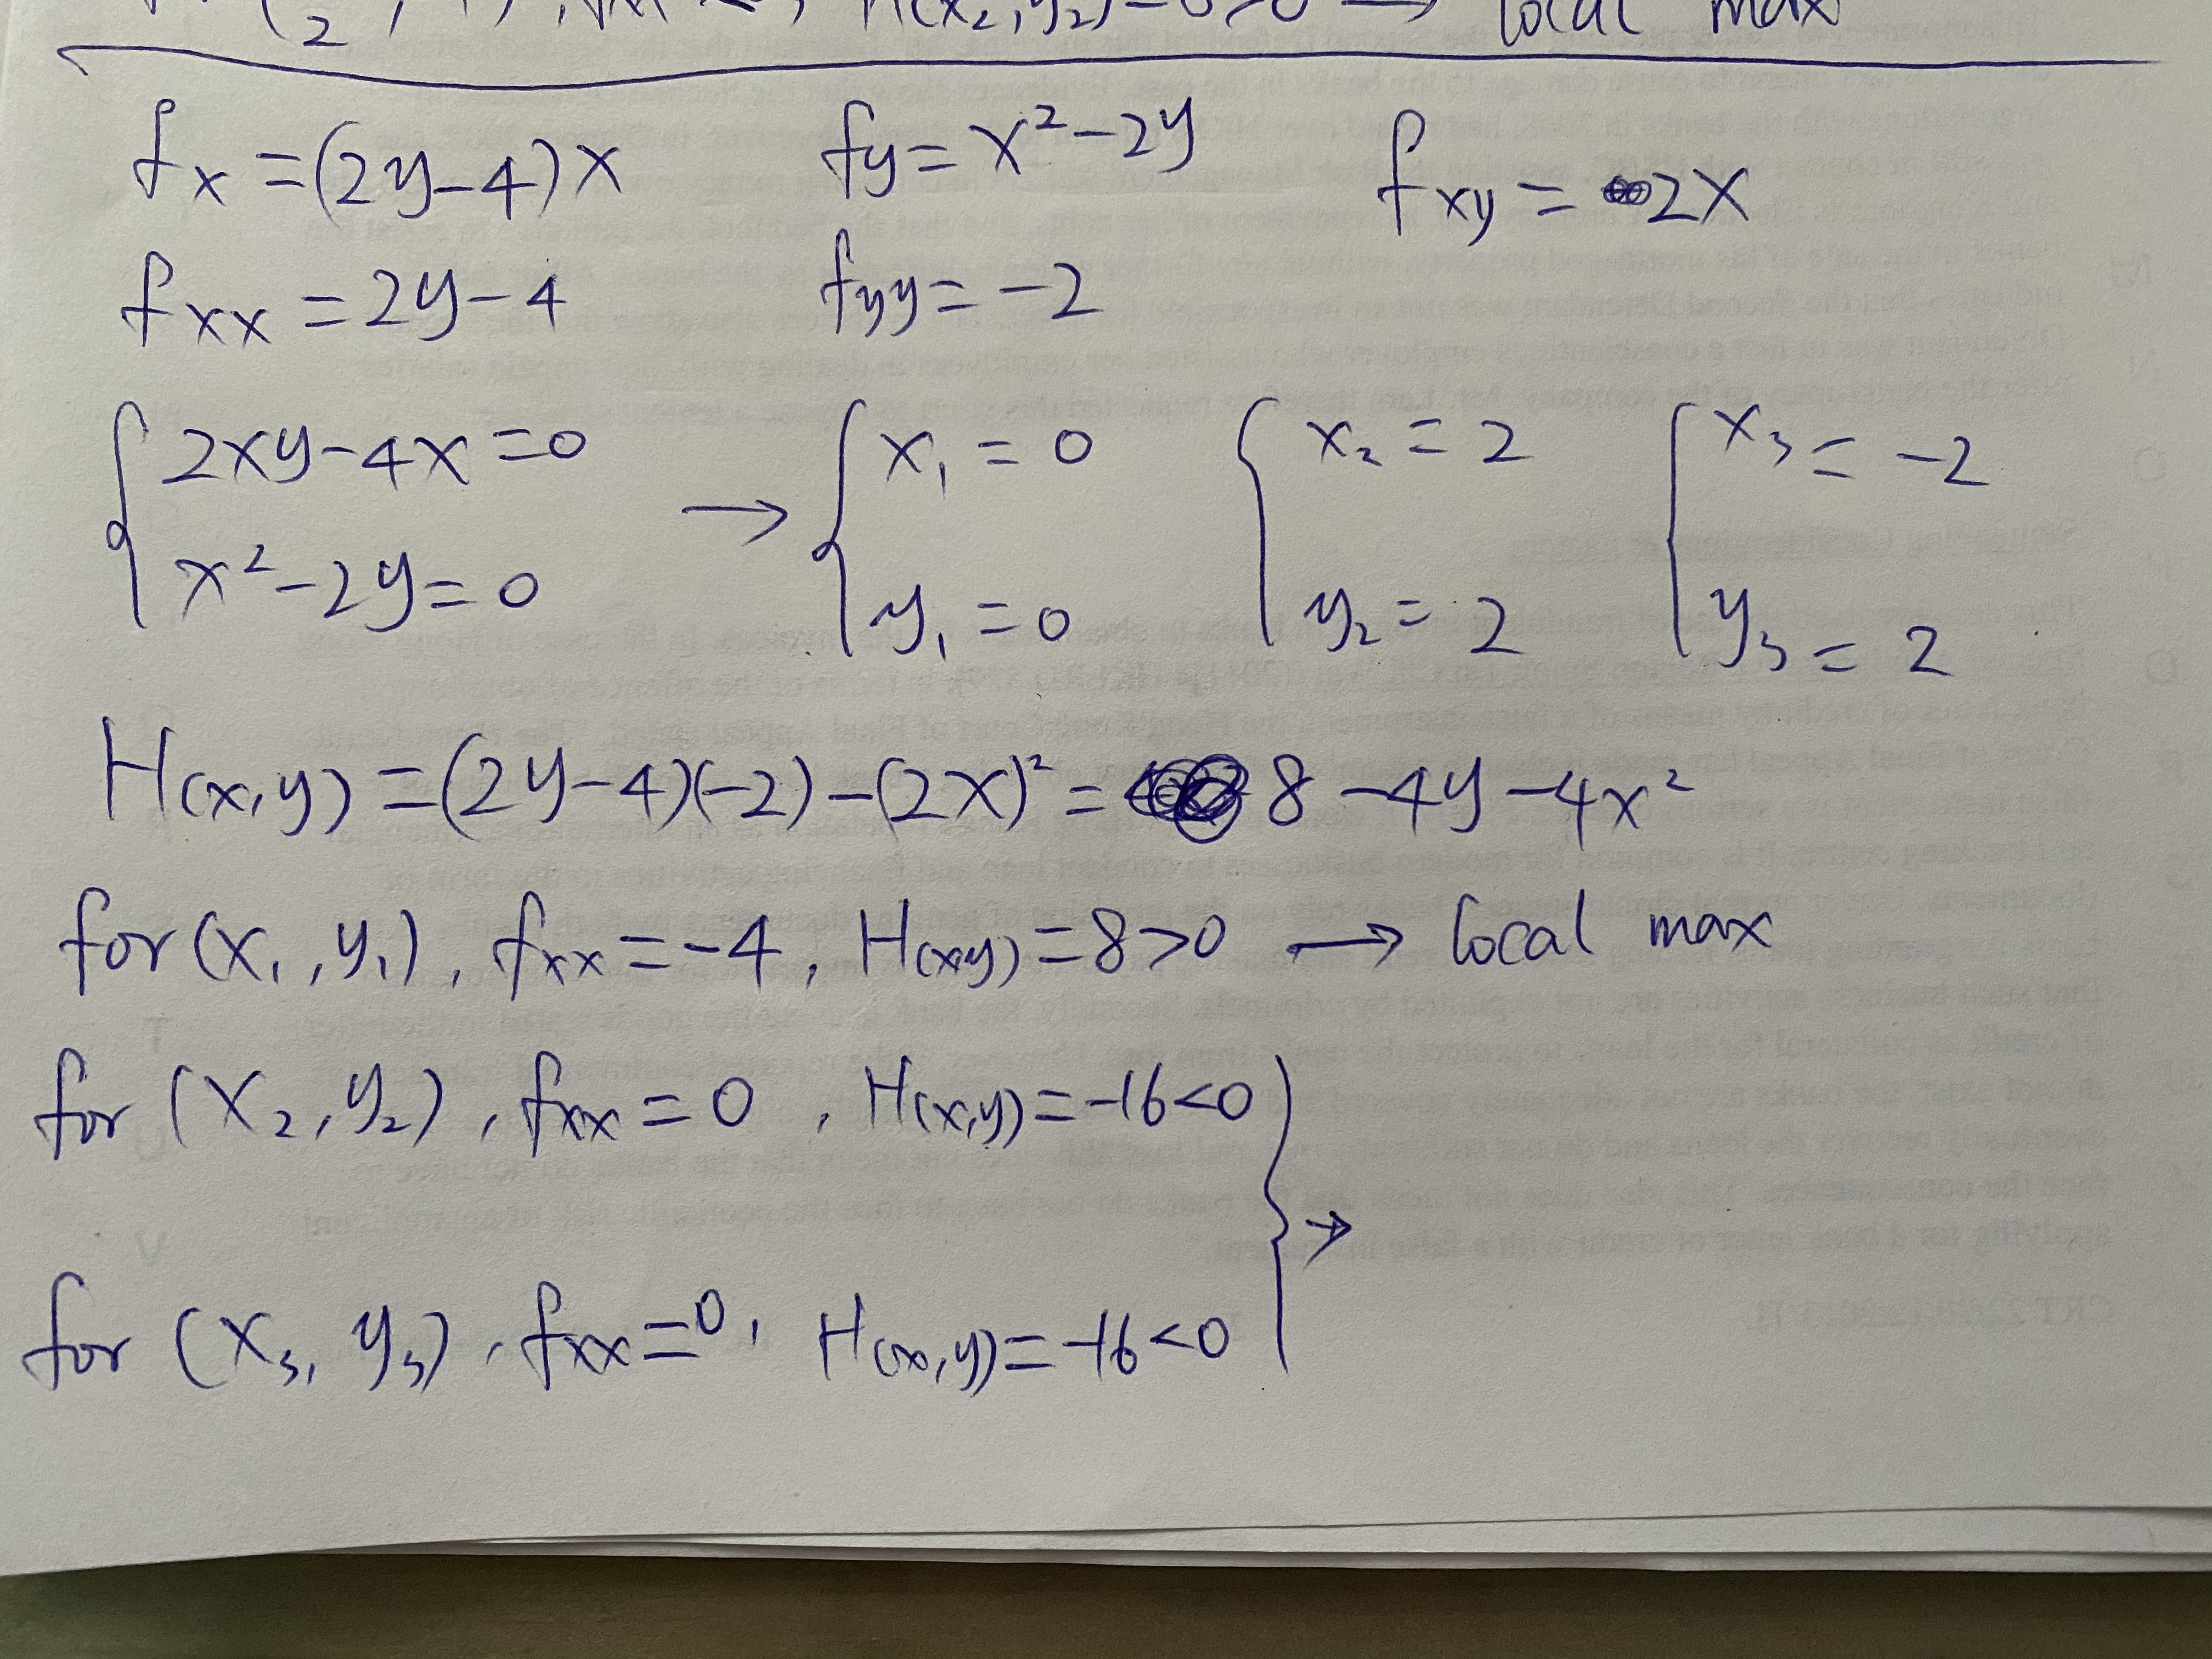 → local max
fx = (2y-4)x fy = x²-2y fxy = 2x
fxx = 2y-4 fyy = -2
{ 2xy-4x=0 → { x₁=0 { x₂=2 { x₃=-2
x²-2y=0 y₁=0 y₂=2 y₃=2
H(x,y) = (2y-4)(-2)-(2x)² = 8-4y-4x²
for (x₁,y₁), fxx=-4, H(x,y)=8>0 → local max
for (x₂,y₂), fxx=0, H(x,y)=-16<0 } →
for (x₃,y₃), fxx=0, H(x,y)=-16<0